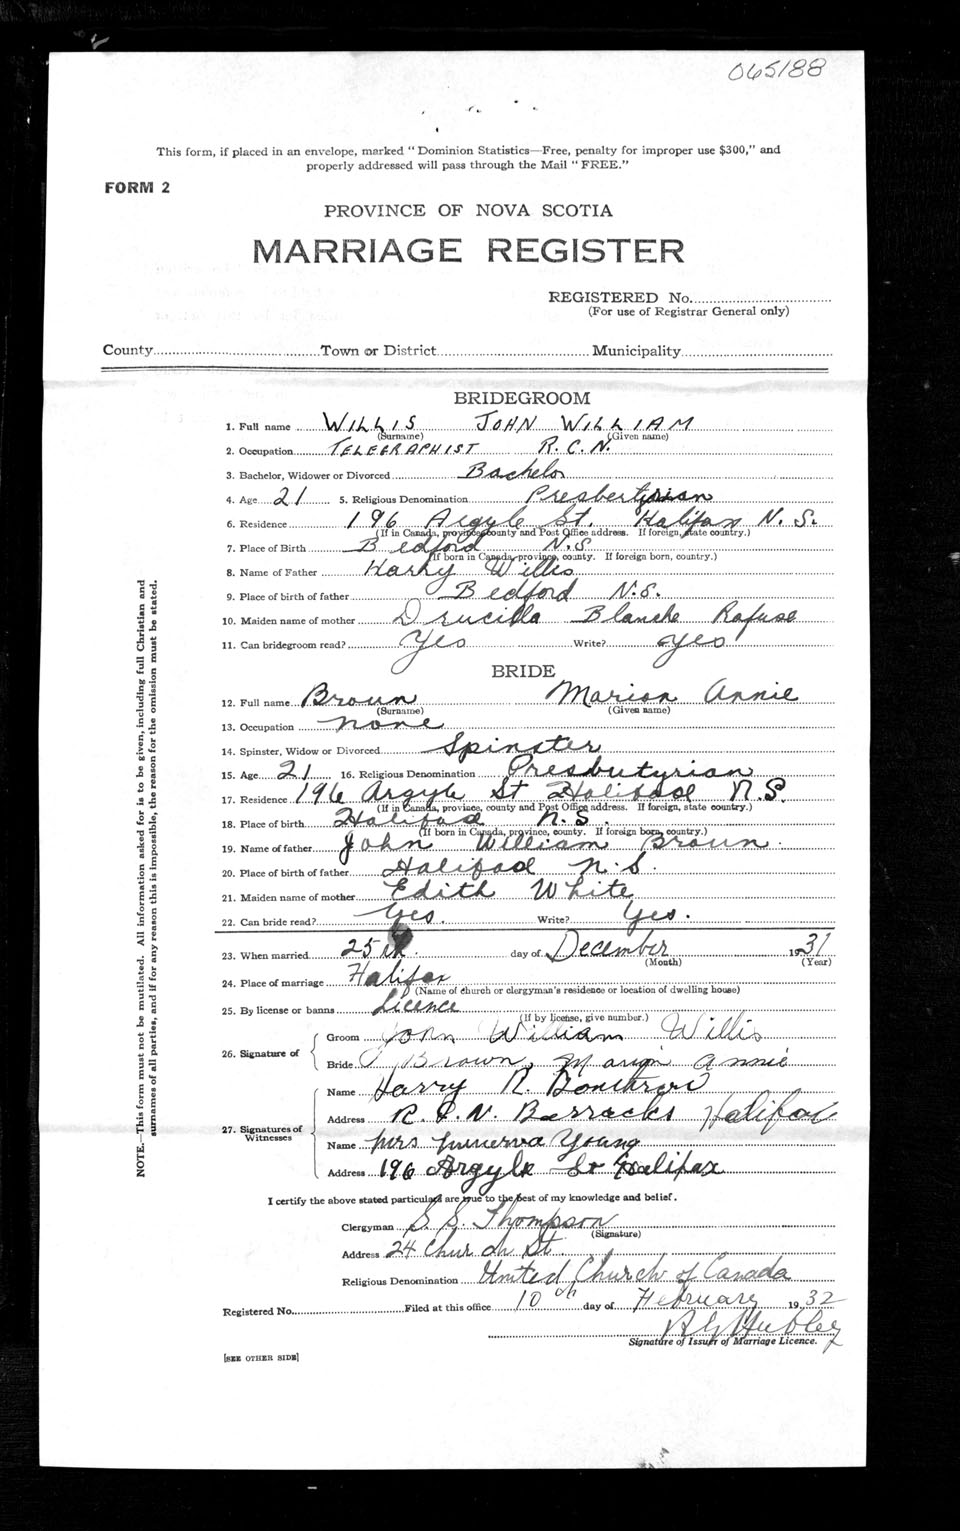 065188
This form, if placed in an envelope, marked " Dominion Statistics—Free, penalty for improper use $300," and
properly addressed will pass through the Mail " FREE."
FORM 2
PROVINCE OF NOVA SCOTIA
MARRIAGE REGISTER
REGISTERED No.
(For use of Registrar General only)
County Town or District Municipality
BRIDEGROOM
1. Full name WILLIS JOHN WILLIAM
(Surname) (Given name)
2. Occupation TELEGRAPHIST R.C.N.
3. Bachelor, Widower or Divorced Bachelor
4. Age 21 5. Religious Denomination Presbertyrian
6. Residence 196 Argyle St. Halifax N.S.
(If in Canada, province, county and Post Office address. If foreign, state country.)
7. Place of Birth Bedford N.S.
(If born in Canada, province, county. If foreign born, country.)
8. Name of Father Harry Willis
9. Place of birth of father Bedford N.S.
10. Maiden name of mother Drucilla Blanche Rafuse
11. Can bridegroom read? Yes Write? Yes
BRIDE
12. Full name Broun Marion Annie
(Surname) (Given name)
13. Occupation none
14. Spinster, Widow or Divorced Spinster
15. Age 21 16. Religious Denomination Presbutyrian
17. Residence 196 Argyle St Halifax N.S.
(If in Canada, province, county and Post Office address. If foreign, state country.)
18. Place of birth Halifax N.S.
(If born in Canada, province, county. If foreign born, country.)
19. Name of father John William Broun.
20. Place of birth of father Halifax N.S.
21. Maiden name of mother Edith White
22. Can bride read? Yes. Write? Yes.
23. When married 25th day of December 1931
(Month) (Year)
24. Place of marriage Halifax
(Name of church or clergyman's residence or location of dwelling house)
25. By license or banns Licence
(If by license, give number.)
26. Signature of
Groom John William Willis
Bride Brown, Annie
27. Signatures of Witnesses
Name Harry R.
Address R.C.N. Barracks Halifax
Name Mrs Minerva Young
Address 196 Argyle St Halifax
I certify the above stated particulars are true to the best of my knowledge and belief.
Clergyman S. S. Thompson
(Signature)
Address 24 Church St.
Religious Denomination United Church of Canada
Registered No. Filed at this office 10th day of February 1932
Hubley
Signature of Issuer of Marriage Licence.
[SEE OTHER SIDE]
NOTE.—This form must not be mutilated. All information asked for is to be given, including full Christian and
surnames of all parties, and if for any reason this is impossible, the reason for the omission must be stated.